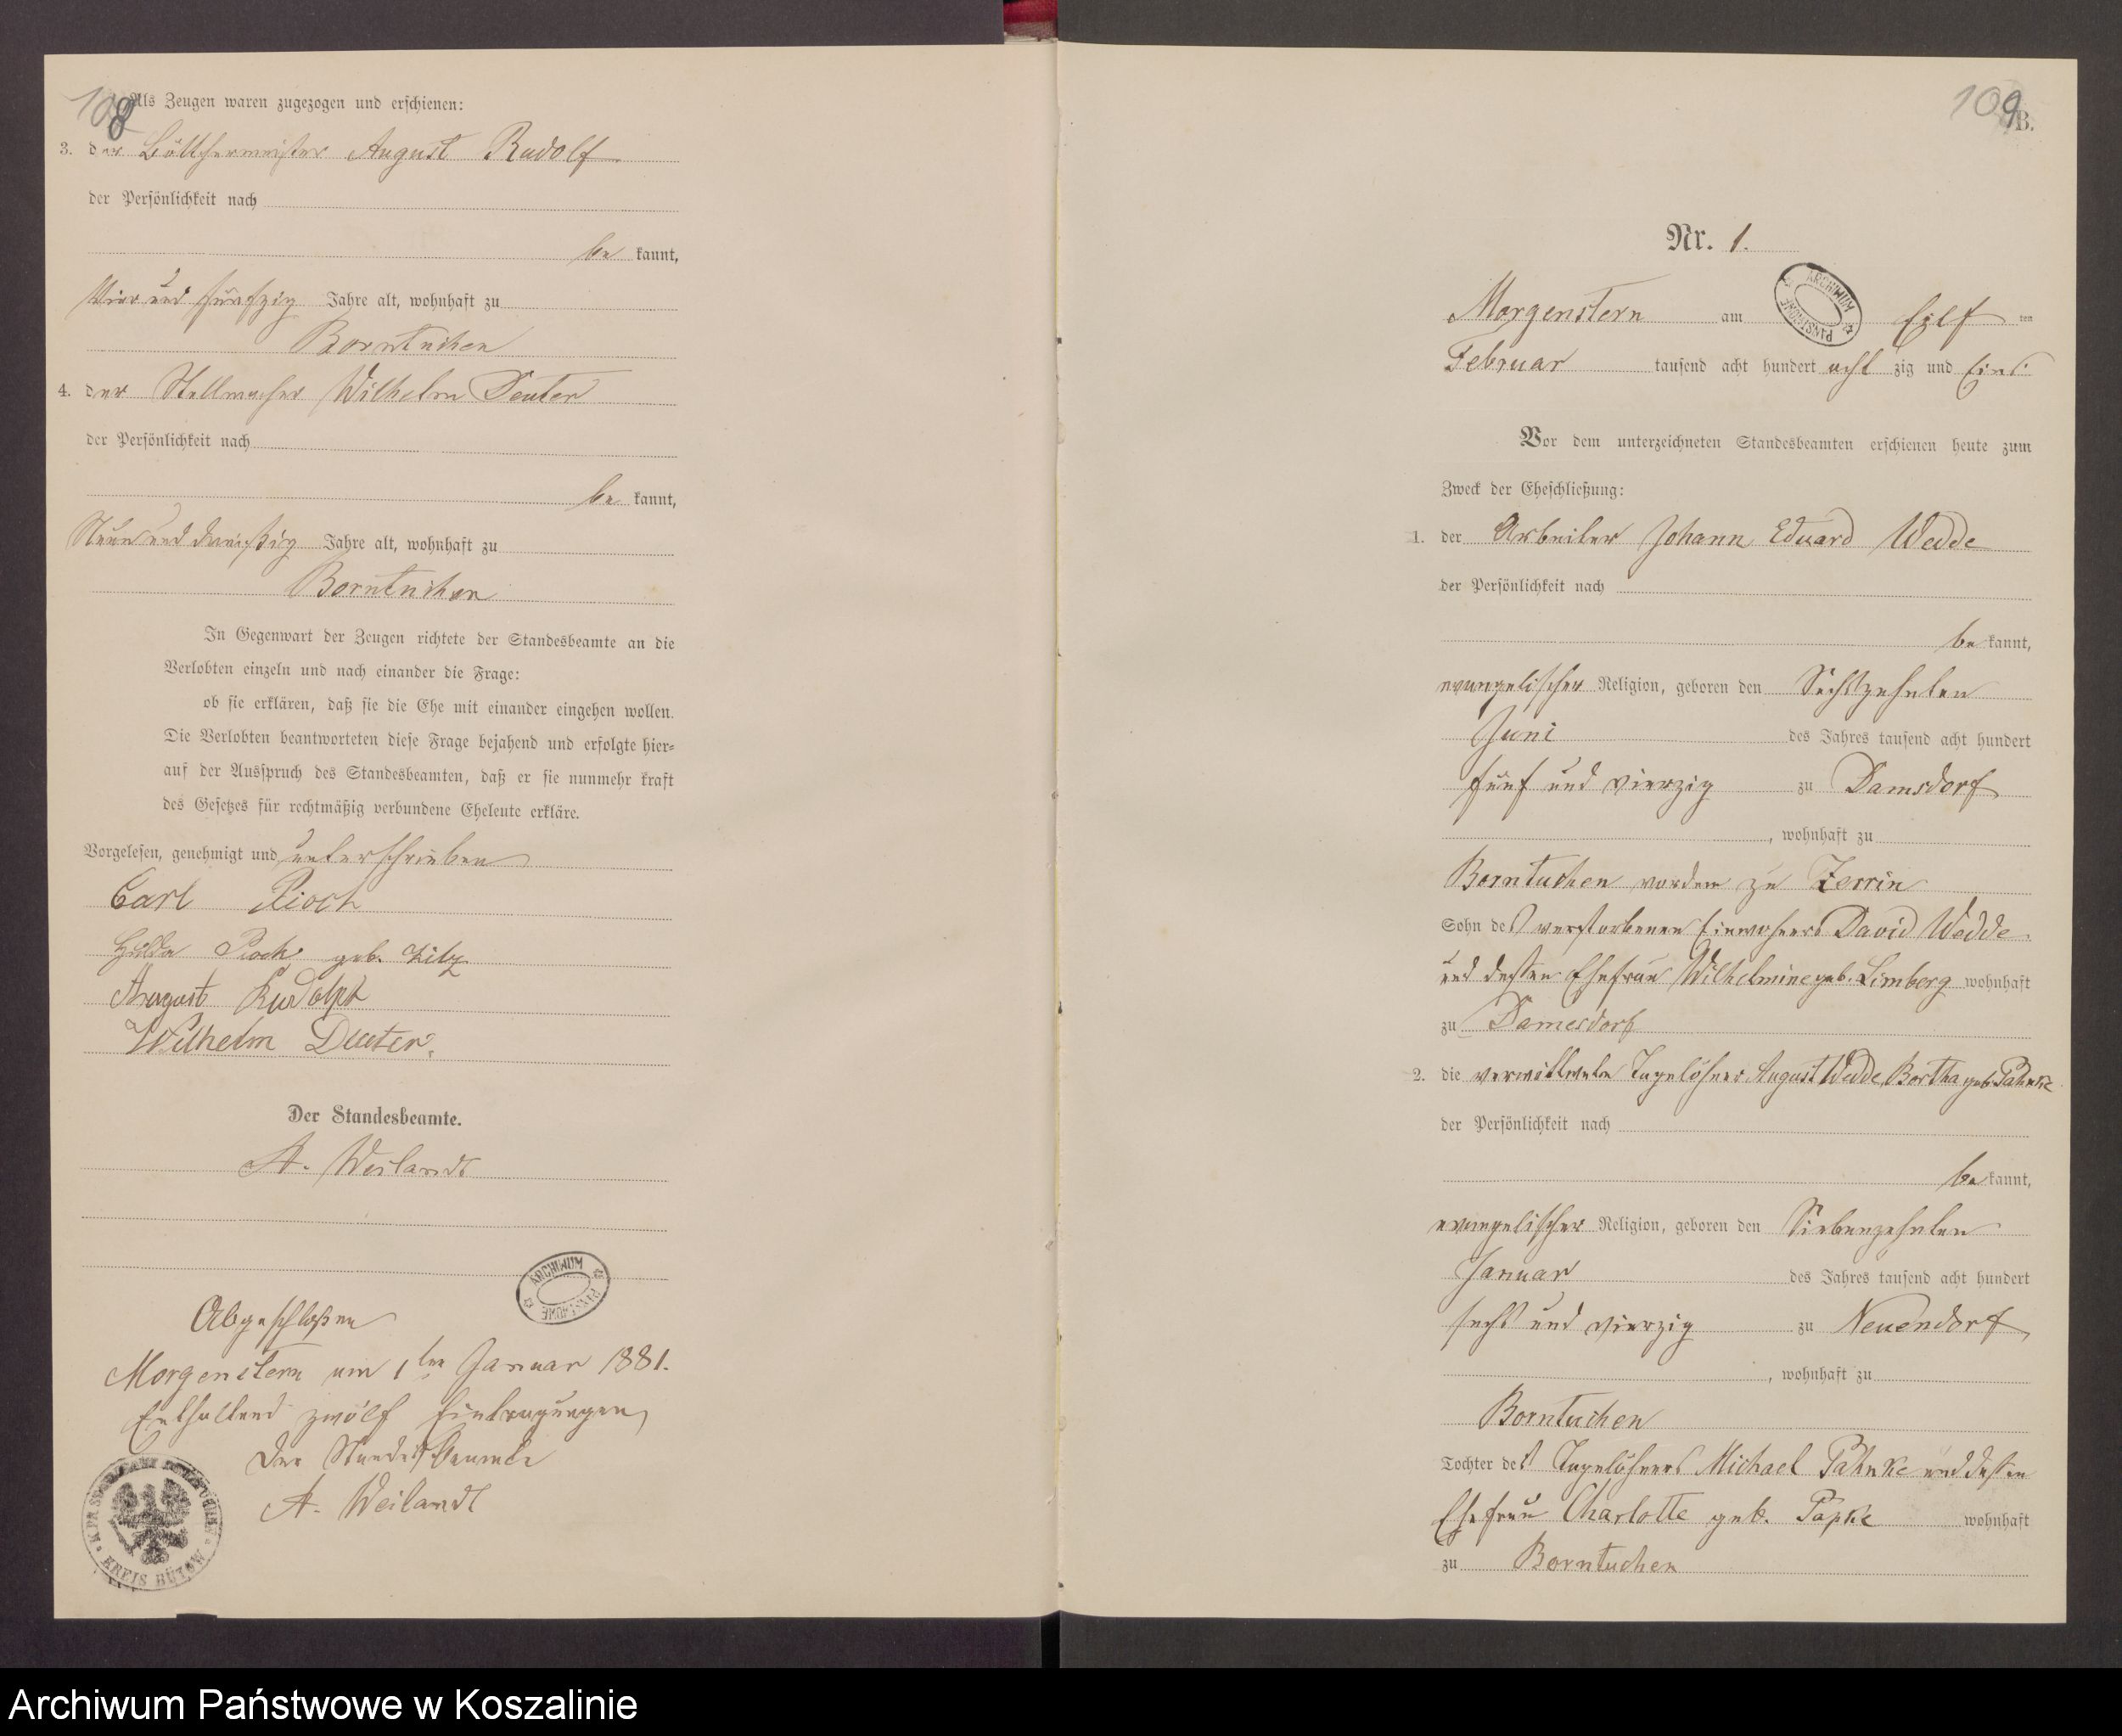 108
Als Zeugen waren zugezogen und erschienen:
3. der Böttchermeister August Rudolf
der Persönlichkeit nach
be kannt,
Vier und fünfzig Jahre alt, wohnhaft zu
Borntuchen
4. der Stellmacher Wilhelm Deuter
der Persönlichkeit nach
be kannt,
Neun und dreißig Jahre alt, wohnhaft zu
Borntuchen
In Gegenwart der Zeugen richtete der Standesbeamte an die
Verlobten einzeln und nach einander die Frage:
ob sie erklären, daß sie die Ehe mit einander eingehen wollen.
Die Verlobten beantworteten diese Frage bejahend und erfolgte hier=
auf der Ausspruch des Standesbeamten, daß er sie nunmehr kraft
des Gesetzes für rechtmäßig verbundene Eheleute erkläre.
Vorgelesen, genehmigt und unterschrieben
Carl Pioch
Hulda Pioch geb. Zilz
August Rudolph
Wilhelm Deuter.
Der Standesbeamte.
A. Weilandt
ARCHIWUM PAŃSTWOWE
Abgeschloßen
Morgenstern am 1ten Januar 1881.
Enthaltend zwölf Eintragungen
Der Standesbeamte
A. Weilandt
KREIS BÜTOW
109
B.
Nr. 1.
ARCHIWUM PAŃSTWOWE
Morgenstern am Eilf ten
Februar tausend acht hundert acht zig und Eins.
Vor dem unterzeichneten Standesbeamten erschienen heute zum
Zweck der Eheschließung:
1. der Arbeiter Johann Eduard Wedde
der Persönlichkeit nach
be kannt,
evangelischer Religion, geboren den Sechszehnten
Juni des Jahres tausend acht hundert
fünf und vierzig zu Damsdorf
, wohnhaft zu
Borntuchen vordem zu Zerrin
Sohn des verstorbenen Einwohners David Wedde
und deßen Ehefrau Wilhelmine geb. Limberg wohnhaft
zu Damesdorf
2. die verwittwete Tagelöhner August Wedde, Bertha geb. Pahnke
der Persönlichkeit nach
be kannt,
evangelischer Religion, geboren den Siebenzehnten
Januar des Jahres tausend acht hundert
sechs und vierzig zu Neuendorf
, wohnhaft zu
Borntuchen
Tochter des Tagelöhners Michael Pahnke und deßen
Ehefrau Charlotte geb. Papke wohnhaft
zu Borntuchen
Archiwum Państwowe w Koszalinie